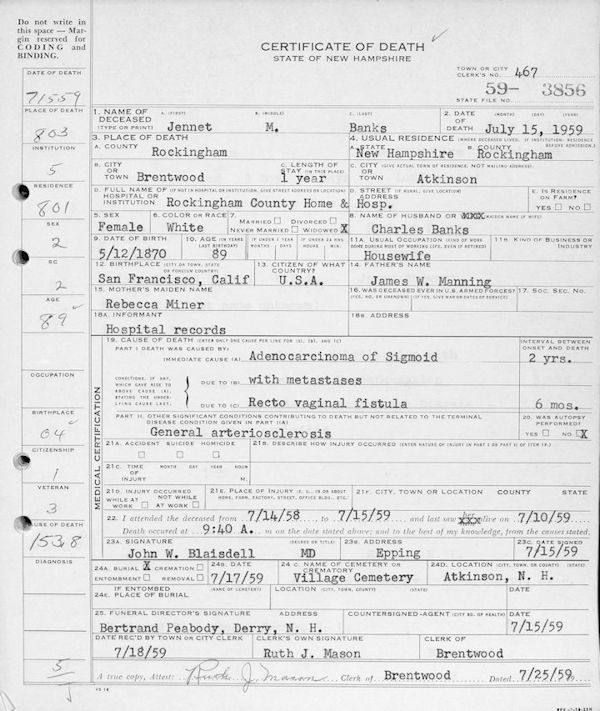 Do not write in
this space — Mar-
gin reserved for
CODING and
BINDING.
DATE OF DEATH
71559
PLACE OF DEATH
803
INSTITUTION
5
RESIDENCE
801
SEX
2
RC
2
AGE
89
OCCUPATION
BIRTHPLACE
04
CITIZENSHIP
1
VETERAN
3
CAUSE OF DEATH
1538
DIAGNOSIS
5
CERTIFICATE OF DEATH
STATE OF NEW HAMPSHIRE
TOWN OR CITY
CLERK'S NO. 467
59- 3856
STATE FILE NO.
1. NAME OF DECEASED (TYPE OR PRINT) A. (FIRST) B. (MIDDLE) C. (LAST) 2. DATE OF DEATH (MONTH) (DAY) (YEAR)
Jennet M. Banks July 15, 1959
3. PLACE OF DEATH 4. USUAL RESIDENCE (WHERE DECEASED LIVED. IF INSTITUTION, RESIDENCE BEFORE ADMISSION.)
A. COUNTY A. STATE B. COUNTY
Rockingham New Hampshire Rockingham
B. CITY OR TOWN C. LENGTH OF STAY (IN THIS PLACE) C. CITY OR TOWN (GIVE ACTUAL TOWN OF RESIDENCE, NOT MAILING ADDRESS)
Brentwood 1 year Atkinson
D. FULL NAME OF HOSPITAL OR INSTITUTION (IF NOT IN HOSPITAL OR INSTITUTION, GIVE STREET ADDRESS OR LOCATION) D. STREET ADDRESS (IF RURAL, GIVE LOCATION) E. IS RESIDENCE ON FARM?
Rockingham County Home & Hosp. YES NO
5. SEX 6. COLOR OR RACE 7. MARRIED DIVORCED NEVER MARRIED WIDOWED X 8. NAME OF HUSBAND OR XXX (MAIDEN NAME OF WIFE)
Female White Charles Banks
9. DATE OF BIRTH 10. AGE (IN YEARS LAST BIRTHDAY) IF UNDER 1 YEAR MONTHS DAYS IF UNDER 24 HRS HOURS MIN. 11A. USUAL OCCUPATION (KIND OF WORK DONE DURING MOST OF WORKING LIFE, EVEN IF RETIRED) 11B. KIND OF BUSINESS OR INDUSTRY
5/12/1870 89 Housewife
12. BIRTHPLACE (CITY OR TOWN, STATE OR FOREIGN COUNTRY) 13. CITIZEN OF WHAT COUNTRY? 14. FATHER'S NAME
San Francisco, Calif U.S.A. James W. Manning
15. MOTHER'S MAIDEN NAME 16. WAS DECEASED EVER IN U.S. ARMED FORCES? (YES, NO, OR UNKNOWN) (IF YES, GIVE WAR OR DATES OF SERVICE) 17. SOC. SEC. NO.
Rebecca Miner
18A. INFORMANT 18B. ADDRESS
Hospital records
MEDICAL CERTIFICATION
19. CAUSE OF DEATH (ENTER ONLY ONE CAUSE PER LINE FOR (A), (B), AND (C)) INTERVAL BETWEEN ONSET AND DEATH
PART I DEATH WAS CAUSED BY:
IMMEDIATE CAUSE (A) Adenocarcinoma of Sigmoid 2 yrs.
CONDITIONS, IF ANY, WHICH GAVE RISE TO ABOVE CAUSE (A), STATING THE UNDERLYING CAUSE LAST.
DUE TO (B) with metastases
DUE TO (C) Recto vaginal fistula 6 mos.
PART II. OTHER SIGNIFICANT CONDITIONS CONTRIBUTING TO DEATH BUT NOT RELATED TO THE TERMINAL DISEASE CONDITION GIVEN IN PART I(A) 20. WAS AUTOPSY PERFORMED?
General arteriosclerosis YES NO X
21A. ACCIDENT SUICIDE HOMICIDE 21B. DESCRIBE HOW INJURY OCCURRED (ENTER NATURE OF INJURY IN PART I OR PART II OF ITEM 19.)
21C. TIME OF INJURY MONTH DAY YEAR HOUR M.
21D. INJURY OCCURRED WHILE AT WORK NOT WHILE AT WORK 21E. PLACE OF INJURY (E. G., IN OR ABOUT HOME, FARM, FACTORY, STREET, OFFICE BLDG., ETC.) 21F. CITY, TOWN OR LOCATION COUNTY STATE
22. I attended the deceased from 7/14/58 to 7/15/59 and last saw her XXX alive on 7/10/59
Death occured at 9:40 A. m on the date stated above; and to the best of my knowledge, from the causes stated.
23A. SIGNATURE (DEGREE OR TITLE) 23B. ADDRESS 23C. DATE SIGNED
John W. Blaisdell MD Epping 7/15/59
24A. BURIAL X CREMATION ENTOMBMENT REMOVAL 24B. DATE 24C. NAME OF CEMETERY OR CREMATORY 24D. LOCATION (CITY, TOWN, OR COUNTY) (STATE)
7/17/59 Village Cemetery Atkinson, N. H.
IF ENTOMBED (NAME OF CEMETERY) LOCATION (CITY, TOWN, OR COUNTY) (STATE) DATE
24E. PLACE OF BURIAL
25. FUNERAL DIRECTOR'S SIGNATURE ADDRESS COUNTERSIGNED-AGENT (CITY BD. OF HEALTH) DATE
Bertrand Peabody, Derry, N. H. 7/15/59
DATE REC'D BY TOWN OR CITY CLERK CLERK'S OWN SIGNATURE CLERK OF
7/18/59 Ruth J. Mason Brentwood
A true copy, Attest: Ruth J. Mason Clerk of Brentwood Dated 7/25/59
VS 14